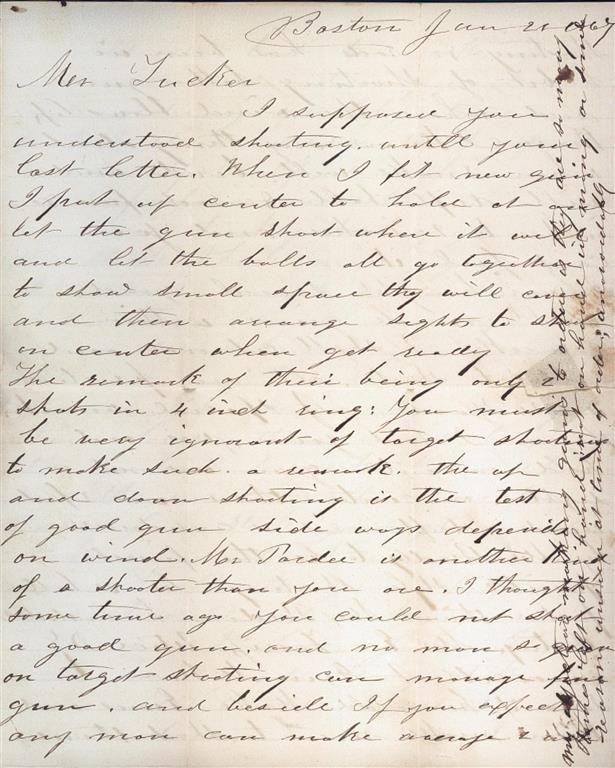 Boston Jan 21 1867
Mr Tucker
I supposed you
understood shooting. untill your
last letter. When I fit new gun
I put up center to hold at and
let the gun shoot where it will
and let the balls all go together
to show small space they will cover
and then arrange sights to sh
on center when get ready
The remark of their being only 2
shots in 4 inch ring: You must
be very ignorant of target shooting
to make such. a remark. the up
and down shooting is the test
of good gun side ways depends
on wind. Mr Pardee is another kind
of a shooter than you are. I thought
some time ago you could not sho
a good gun. and no man so green
on target shooting can manage fine
gun. and beside If you expect
any man can make average 2 in